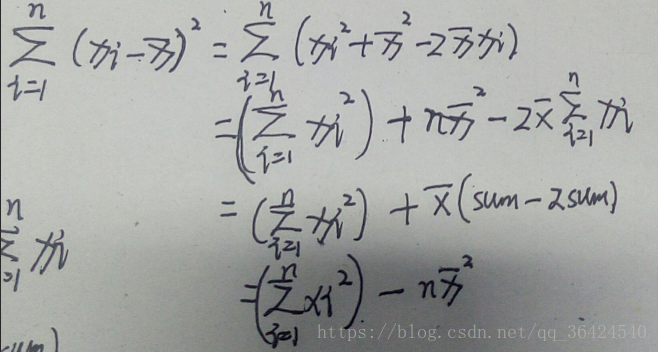 ∑_{i=1}^{n} (xi - x̄)² = ∑_{i=1}^{n} (xi² + x̄² - 2x̄xi)
= (∑_{i=1}^{n} xi²) + nx̄² - 2x̄ ∑_{i=1}^{n} xi
= (∑_{i=1}^{n} xi²) + x̄(sum - 2sum)
∑_{i=1}^{n} xi
= (∑_{i=1}^{n} xi²) - nx̄²
https://blog.csdn.net/qq_36424540
sum)